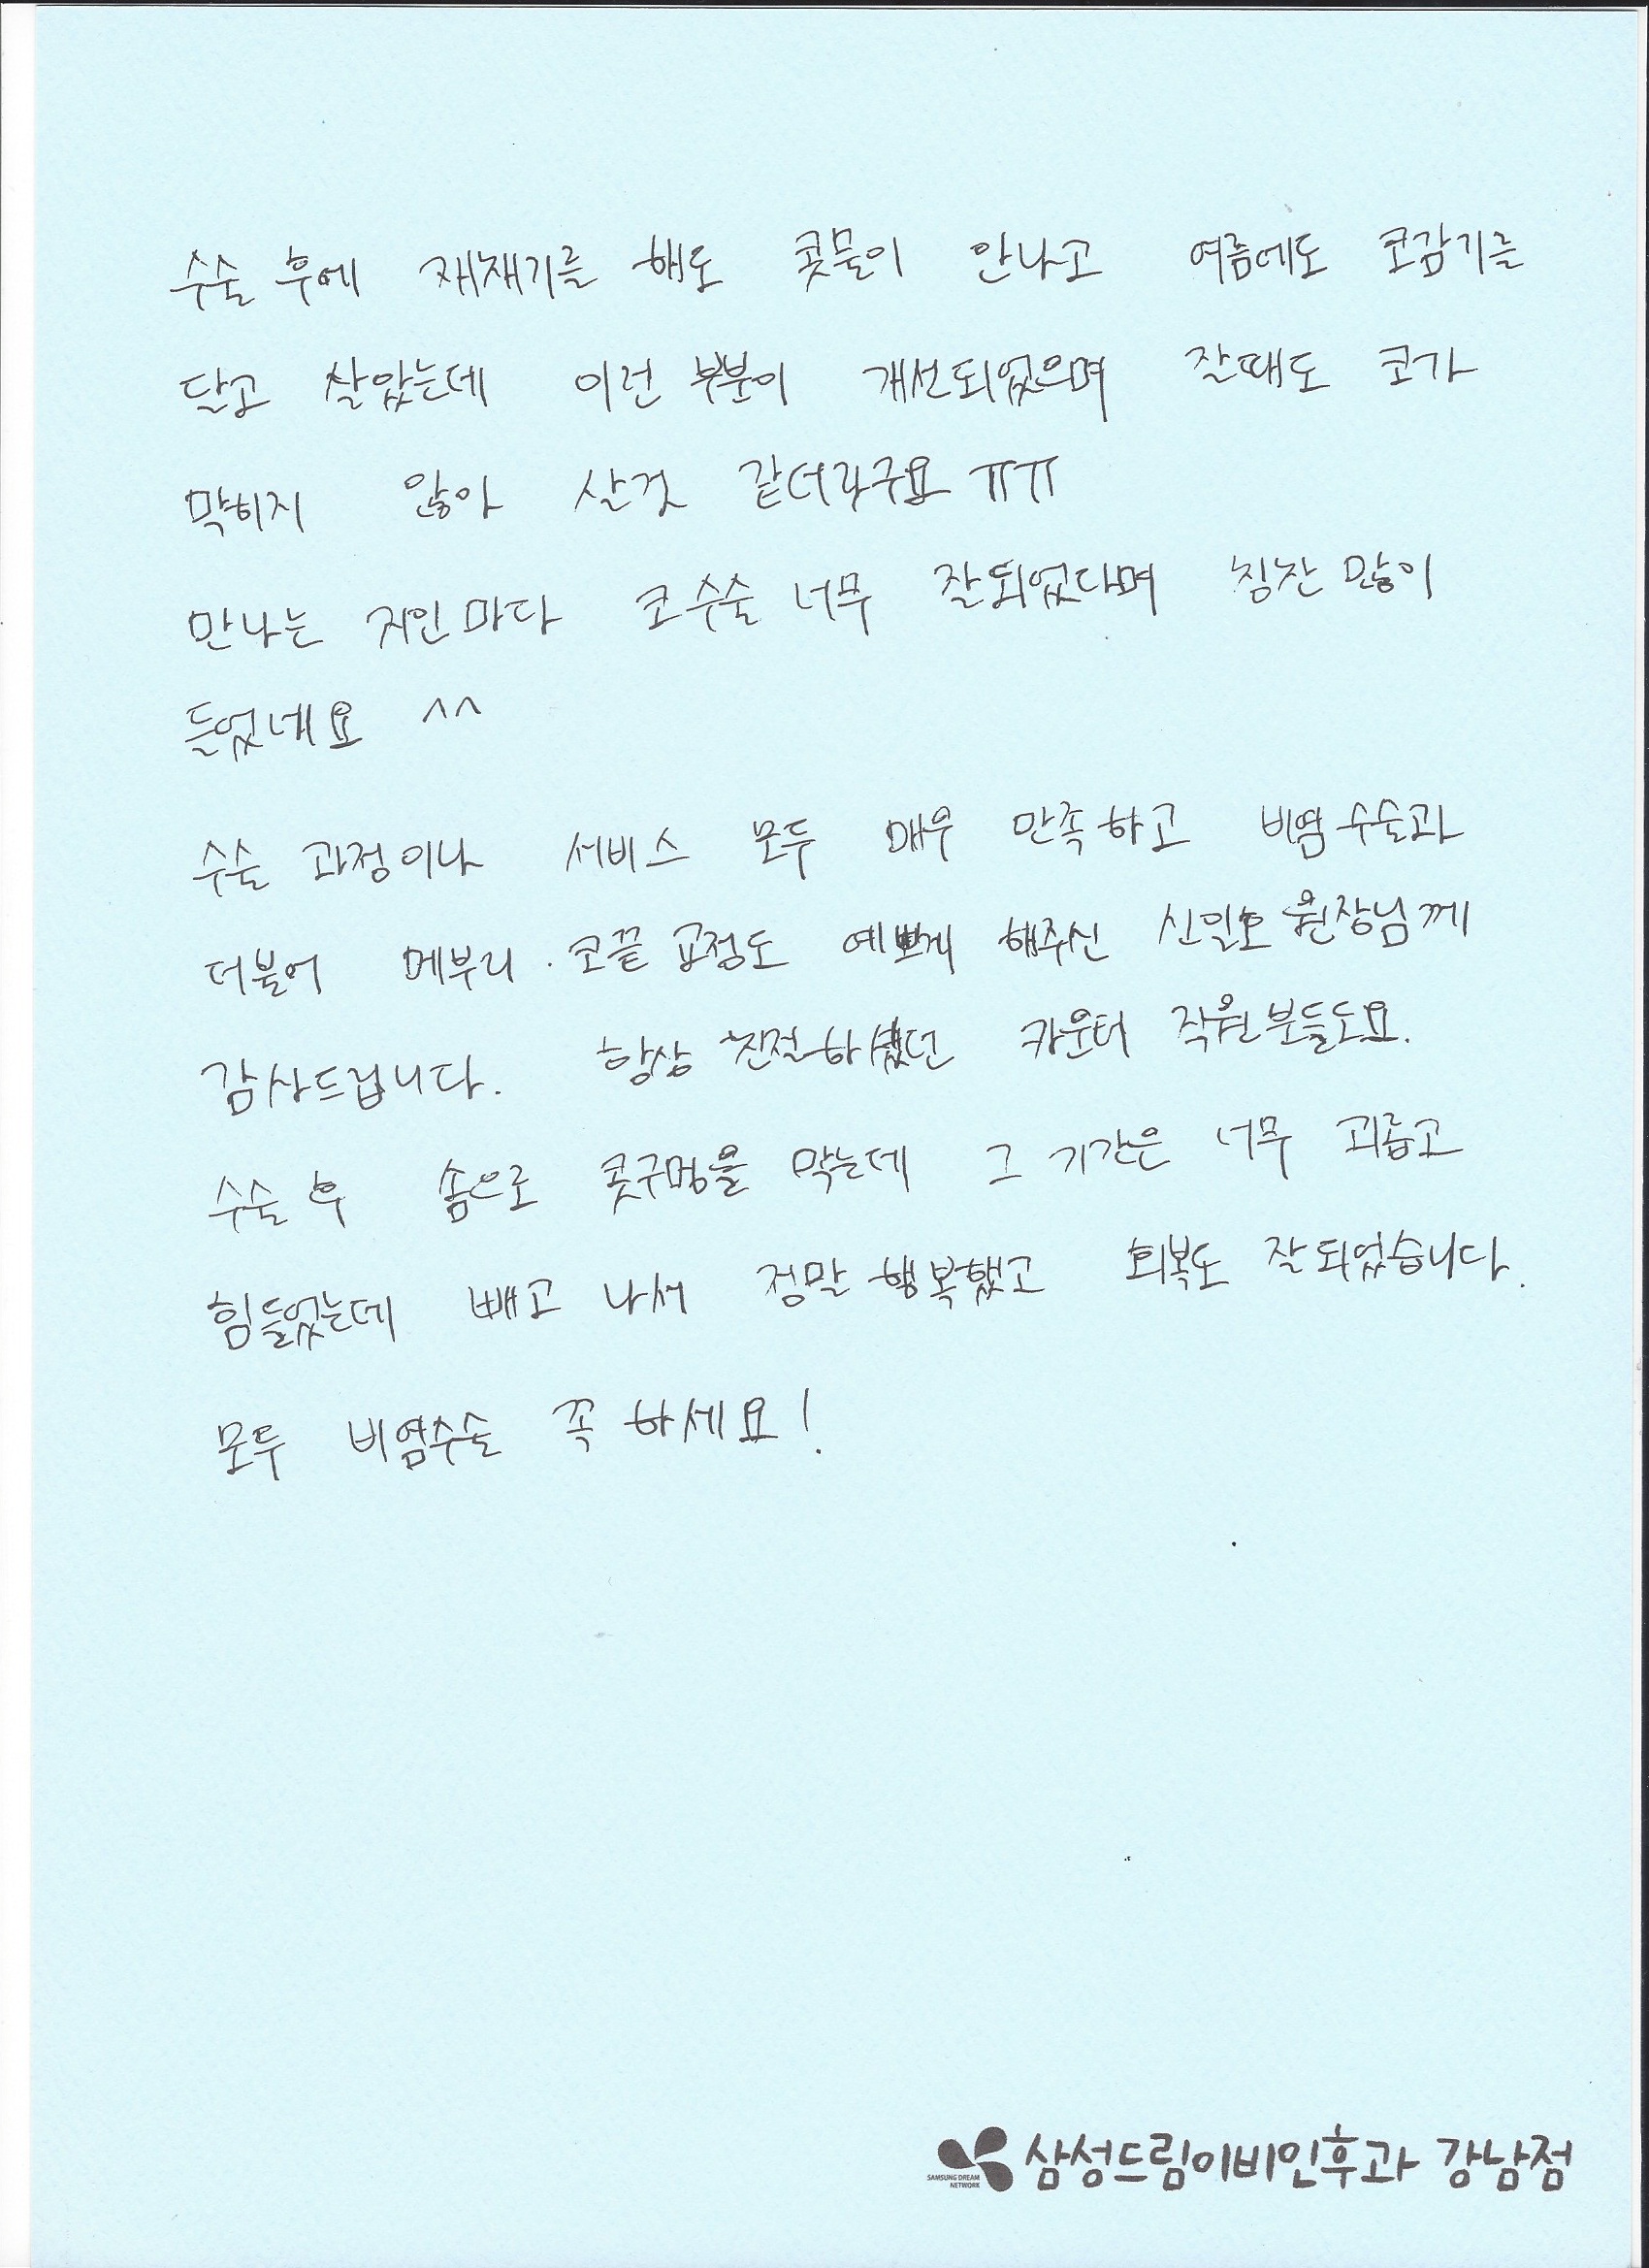 수술 후에 재채기를 해도 콧물이 안나고 여름에도 코감기를
달고 살았는데 이런 부분이 개선되었으며 잘때도 코가
막히지 않아 살것 같더라구요 ㅠㅠ
만나는 지인마다 코수술 너무 잘되었다며 칭찬 많이
들었네요 ^^
수술 과정이나 서비스 모두 매우 만족하고 비염수술과
더불어 메부리·코끝 교정도 예쁘게 해주신 신일호 원장님께
감사드립니다. 항상 친절하셨던 카운터 직원분들도요.
수술 후 솜으로 콧구멍을 막는데 그 기간은 너무 괴롭고
힘들었는데 빼고 나서 정말 행복했고 회복도 잘되었습니다.
모두 비염수술 꼭 하세요!
SAMSUNG DREAM
NETWORK
삼성드림이비인후과 강남점